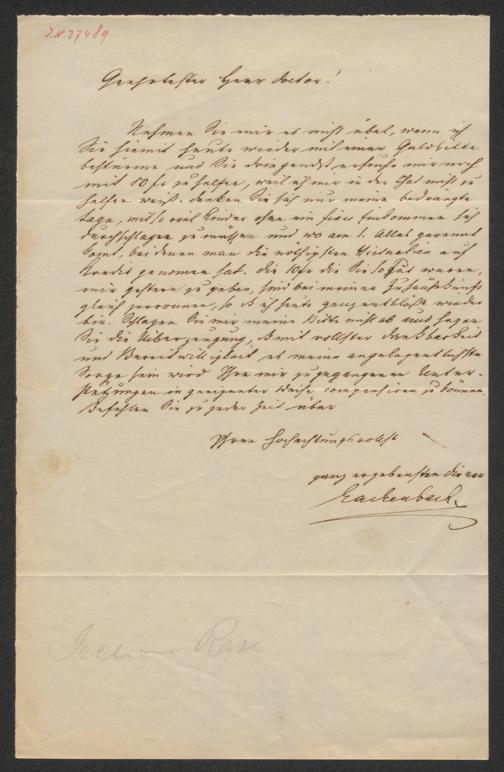 J.N. 27489
Geehrtester Herr Doctor!
Nehmen Sie mir es nicht übel, wenn ich
Sie hiemit heute wieder mit einer Geldbitte
bestürme und Sie dringendst ersuche mir noch
mit 10 fr zu helfen, weil ich mir in der That nicht zu
helfen weiß. Denken Sie sich nur meine bedrängte
Lage, mit so viel Kinder ohne ein fixes Einkommen sich
durchschlagen zu müssen und wo am 1. Alles gerannt
komt, bei denen man die nöthigsten Victualien auf
Kredit genomen hat. Die 10 fr die Sie so gut waren,
mir gestern zu geben, sind bei meiner Zuhausekunft
gleich zerronnen, so daß ich heute ganz entblößt wieder
bin. Schlagen Sie mir meine Bitte nicht ab und hegen
Sie die Überzeugung, daß mit vollster Dankbarkeit
und Bereitwilligkeit es meine angelegentlichste
Sorge sein wird Ihre mir zugegangenen Unter-
stützungen in geeigneter Weise compensiren zu können.
Befehlen Sie zu jeder Zeit über
Ihren hochachtungsvollst
ganz ergebensten Diener
Hackenbach